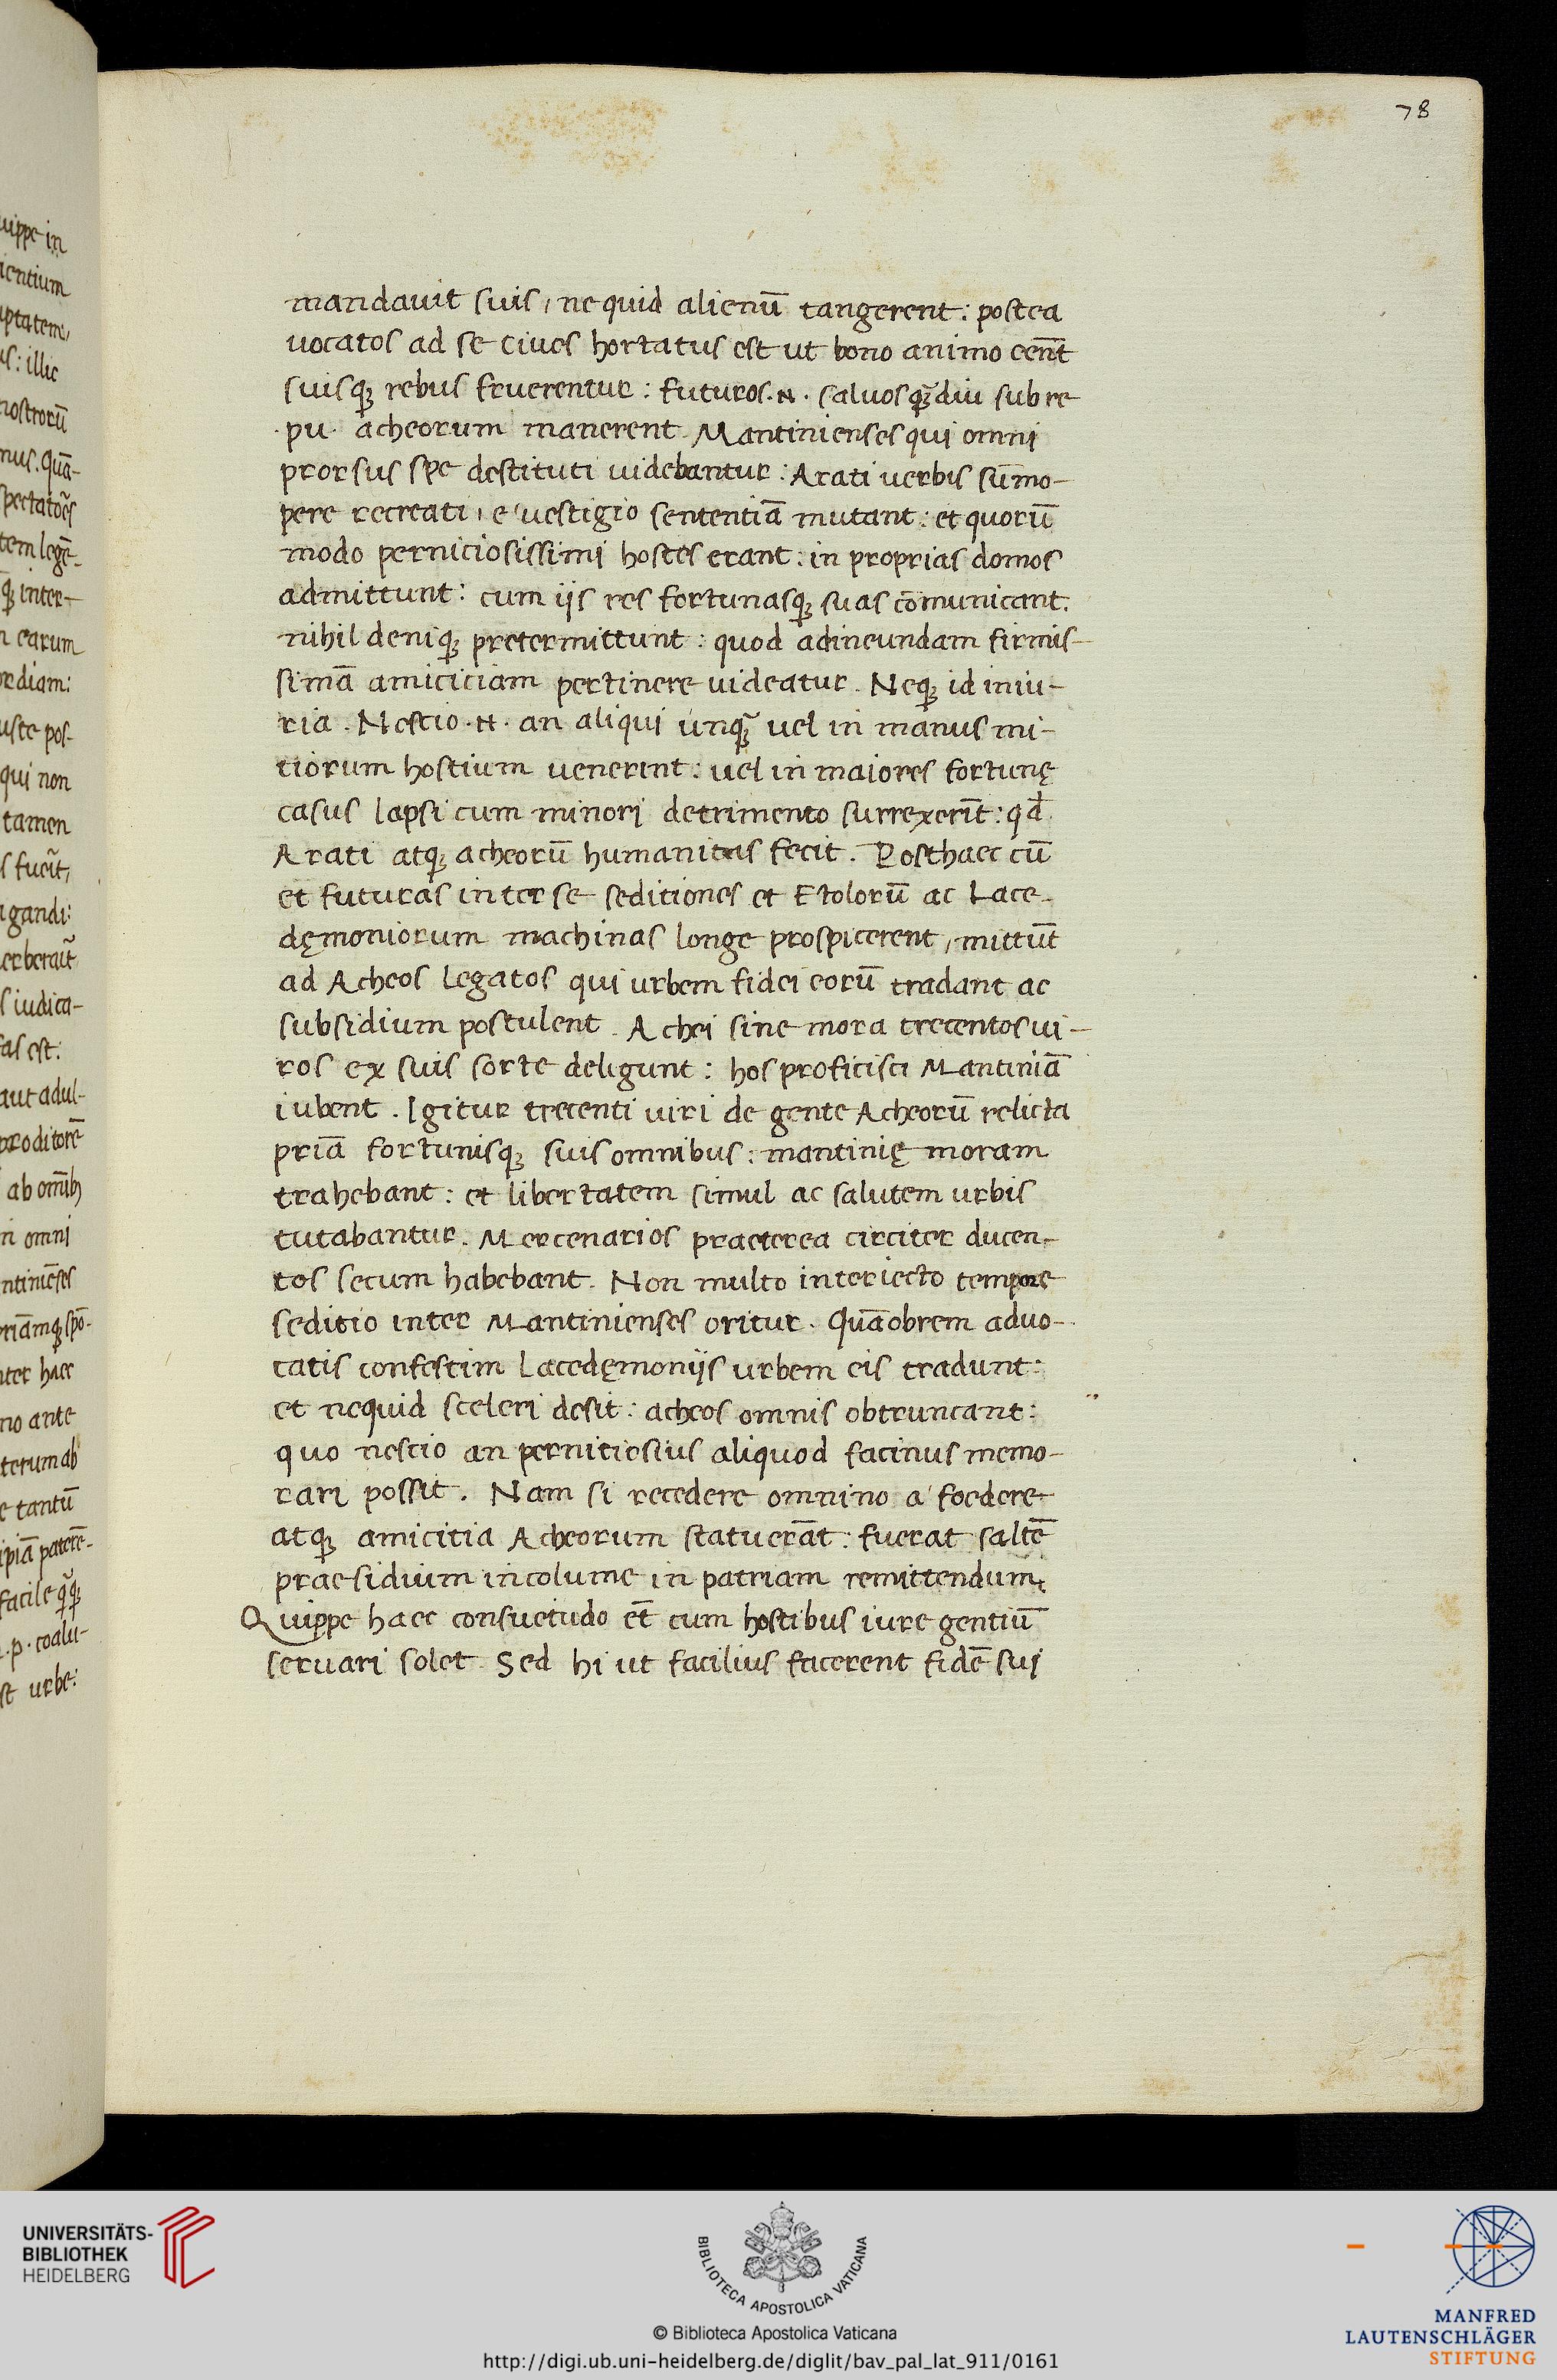 78
mandauit suis, ne quid alienū tangerent: postea
uocatos ad se ciues hortatus est ut bono animo eēnt
suisq; rebus fruerentur: futuros .N. saluos q̄ȝdiu sub re
.pu. acheorum manerent. Mantinienses qui omni
prorsus spe destituti uidebantur: Arati uerbis sūmo-
pere recreati, e uestigio sententiā mutant: et quorū
modo perniciosissimi hostes erant: in proprias domos
admittunt: cum ijs res fortunasq; suas cōmunicant.
nihil deniq; pretermittunt: quod adineundam firmis-
simā amiciciam pertinere uideatur. Neq; id iniu-
ria. Nescio .N. an aliqui unq̄ȝ uel in manus mi-
tiorum hostium uenerint: uel in maiores fortunę
casus lapsi cum minori detrimento surrexerīt: qđ
Arati atq; acheorū humanitas fecit. Posthaec cū
et futuras inter se seditiones et Etolorū ac Lace-
dęmoniorum machinas longe prospicerent, mittūt
ad Acheos legatos qui urbem fidei eorū tradant ac
subsidium postulent. Achei sine mora trecentos ui-
ros ex suis sorte deligunt: hos proficisci Mantiniā
iubent. Igitur trecenti uiri de gente Acheorū relicta
priā fortunisq; suis omnibus: mantinię moram
trahebant: et libertatem simul ac salutem urbis
tutabantur. Mercenarios praeterea circiter ducen-
tos secum habebant. Non multo interiecto tempore
seditio inter Mantinienses oritur. Quāobrem aduo-
catis confestim Lacedęmonijs urbem eis tradunt:
et nequid sceleri desit: acheos omnis obtruncant:
quo nescio an pernitiosius aliquod facinus memo-
rari possit. Nam si recedere omnino a' foedere
atq; amicitia Acheorum statuerāt: fuerat saltē
praesidium incolume in patriam remittendum.
Quippe haec consuetudo ēt cum hostibus iure gentiū
seruari solet. Sed hi ut facilius facerent fidē sui
UNIVERSITÄTS-
BIBLIOTHEK
HEIDELBERG
BIBLIOTECA APOSTOLICA VATICANA
© Biblioteca Apostolica Vaticana
http://digi.ub.uni-heidelberg.de/diglit/bav_pal_lat_911/0161
MANFRED
LAUTENSCHLÄGER
STIFTUNG